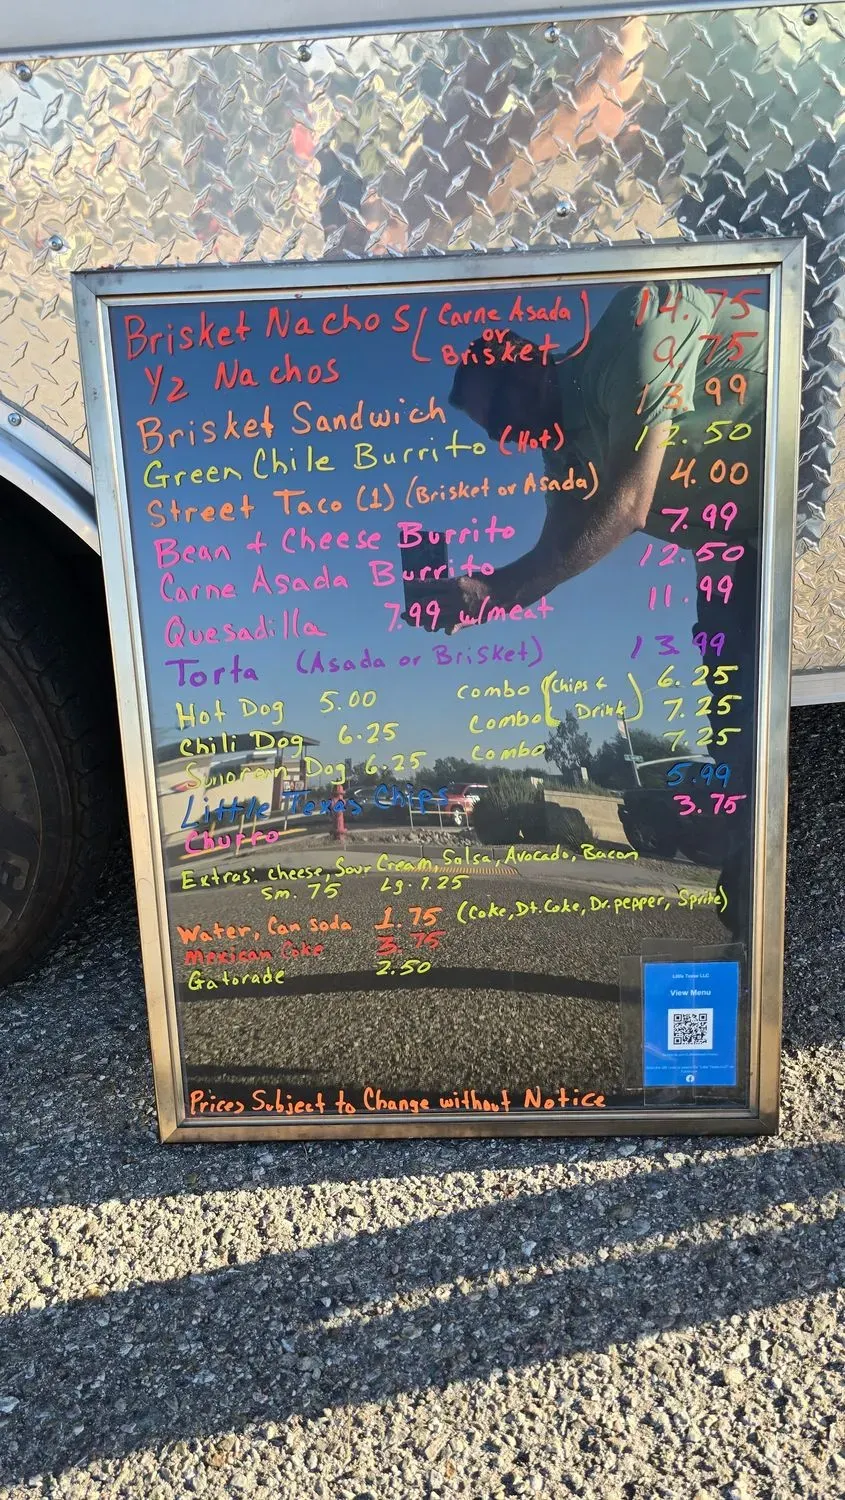 Brisket Nachos (Carne Asada or Brisket) 14.75
1/2 Nachos 9.75
Brisket Sandwich 13.99
Green Chile Burrito (Hot) 12.50
Street Taco (1) (Brisket or Asada) 4.00
Bean + Cheese Burrito 7.99
Carne Asada Burrito 12.50
Quesadilla 7.99 w/meat 11.99
Torta (Asada or Brisket) 13.99
Hot Dog 5.00 combo (Chips + Drink) 6.25
Chili Dog 6.25 Combo 7.25
Sunoran Dog 6.25 Combo 7.25
Little Texas Chips 5.99
Churro 3.75
Extras: cheese, Sour Cream, Salsa, Avocado, Bacon
Sm. 75 Lg. 1.25
Water, Can soda 1.75 (Coke, Dt. Coke, Dr. pepper, Sprite)
Mexican Coke 3.75
Gatorade 2.50
Little Texas LLC
View Menu
Prices Subject to Change without Notice